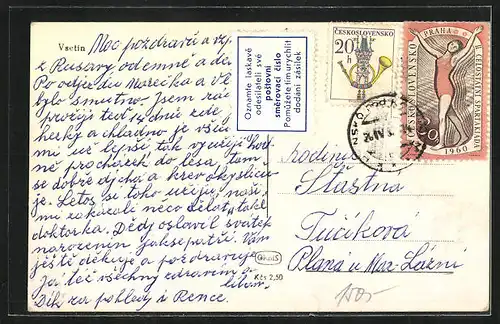 Vsetín
Moc pozdravů a vzp
z Rusavy od emne a dě
Po odjezdu Mařečka a Vě
bylo smutno - jsem rád
prožiji ted 14 dní zde
hezky a chladno je všu
mi už lepší tak využiji hod
né procházek do lesa, tam
se dobře dýchá a krev okysliču
je. Letos si toho užiju, naši
mi zakázali něco dělat, také
doktorka. Dědy oslovil svátek
narozenin jaksepatří. Vám
ještě děkuje a pozdravuje
Já též všechny zdravím a
líbám.
Dík za pohledy i Rence.
Oznamte laskavě
odesílateli své
poštovní
směrovací číslo
Pomůžete tím urychlit
dodání zásilek
ČESKOSLOVENSKO
20
h
PRAHA
II. CELOSTÁTNÍ SPARTAKIÁDA
ČESKOSLOVENSKO
1960
Rodina
Šťastna
Fučíková
Planá u Mar. Lázní
Kčs 2,50